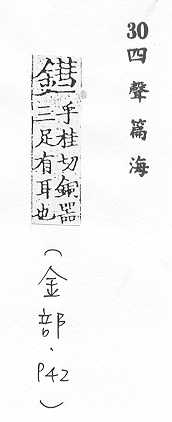 30 四聲篇海
乎桂切銅器
三足有耳也
(金部．P42)